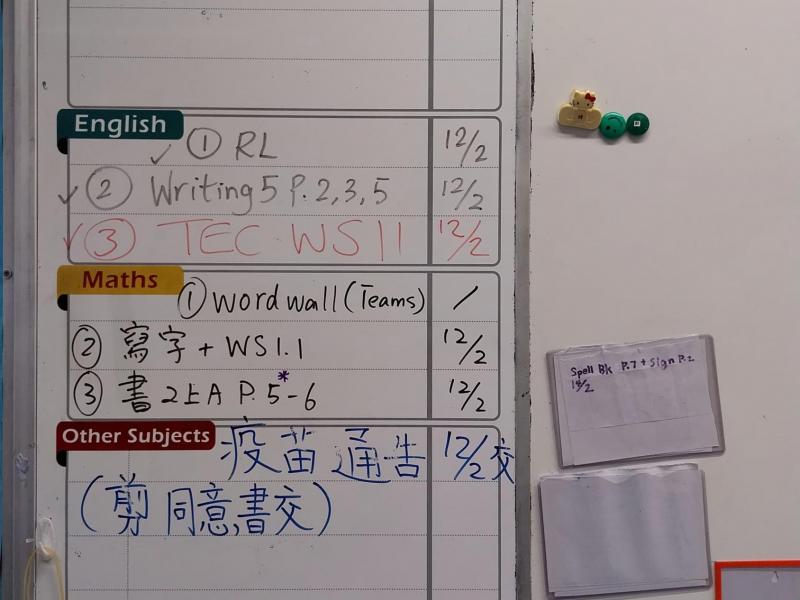 English
✓ ① RL 12/2
✓ ② Writing 5 P. 2, 3, 5 12/2
✓ ③ TEC WS 11 12/2
Maths
① word wall (Teams) /
② 寫字 + WS 1.1 12/2
③ 書 2上A P. 5*-6 12/2
Other Subjects
疫苗通告 12/2 交
(剪同意書交)
Spell Bk P.7 + Sign P.2